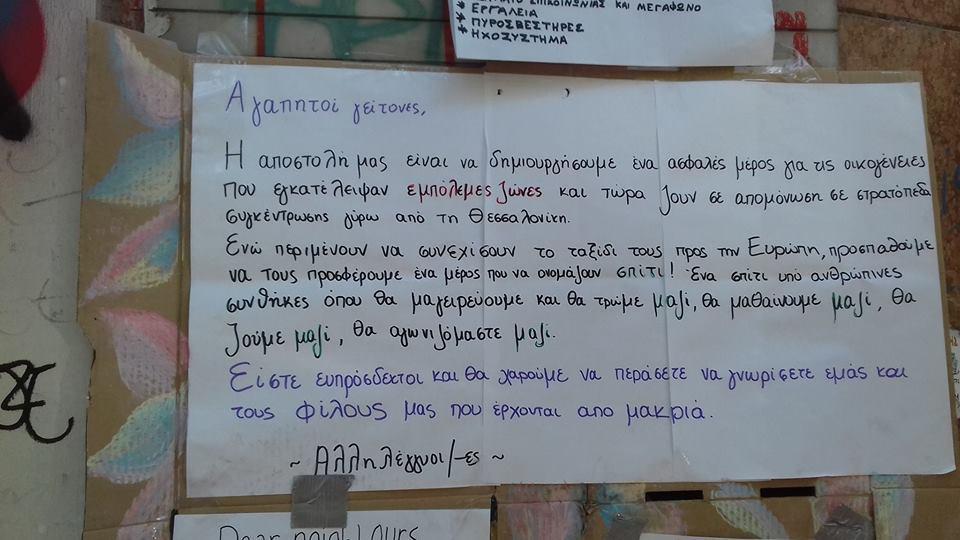 ΕΠΙΚΟΙΝΩΝΙΑΣ ΚΑΙ ΜΕΓΑΦΩΝΟ
* ΕΡΓΑΛΕΙΑ
* ΠΥΡΟΣΒΕΣΤΗΡΕΣ
* ΗΧΟΣΥΣΤΗΜΑ
Αγαπητοί γείτονες,
Η αποστολή μας είναι να δημιουργήσουμε ένα ασφαλές μέρος για τις οικογένειες
που εγκατέλειψαν εμπόλεμες ζώνες και τώρα ζουν σε απομόνωση σε στρατόπεδα
συγκέντρωσης γύρω από τη Θεσσαλονίκη.
Ενώ περιμένουν να συνεχίσουν το ταξίδι τους προς την Ευρώπη, προσπαθούμε
να τους προσφέρουμε ένα μέρος που να ονομάζουν σπίτι! Ένα σπίτι υπό ανθρώπινες
συνθήκες όπου θα μαγειρεύουμε και θα τρώμε μαζί, θα μαθαίνουμε μαζί, θα
ζούμε μαζί, θα αγωνιζόμαστε μαζί.
Είστε ευπρόσδεκτοι και θα χαρούμε να περάσετε να γνωρίσετε εμάς και
τους φίλους μας που έρχονται απο μακριά.
~ Αλληλέγγυοι/-ες ~
Dear neighbours